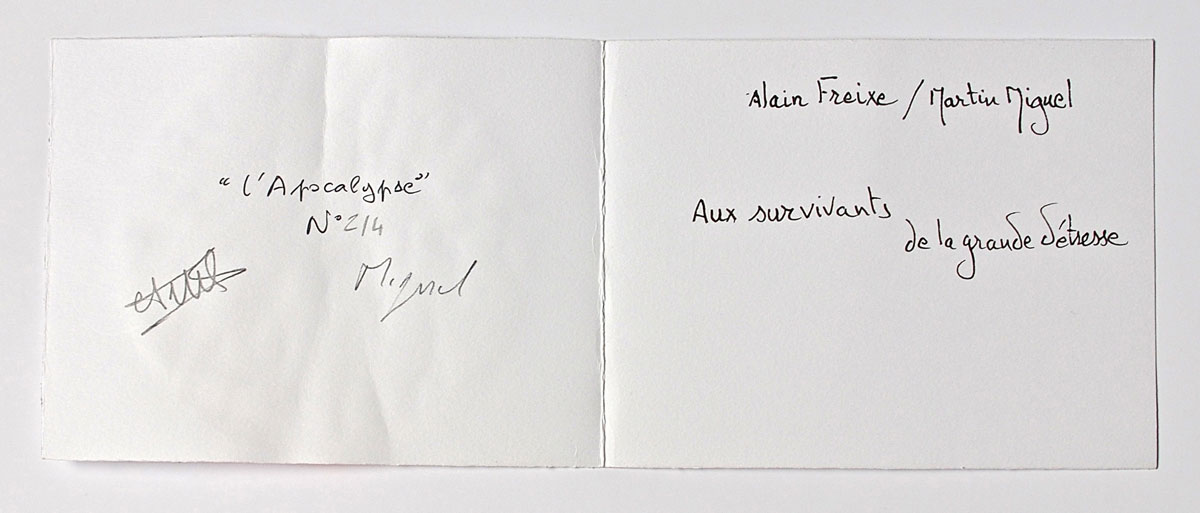 “l'Apocalypse”
N° 2/4
Miguel
Alain Freixe / Martin Miguel
Aux survivants
de la grande détresse